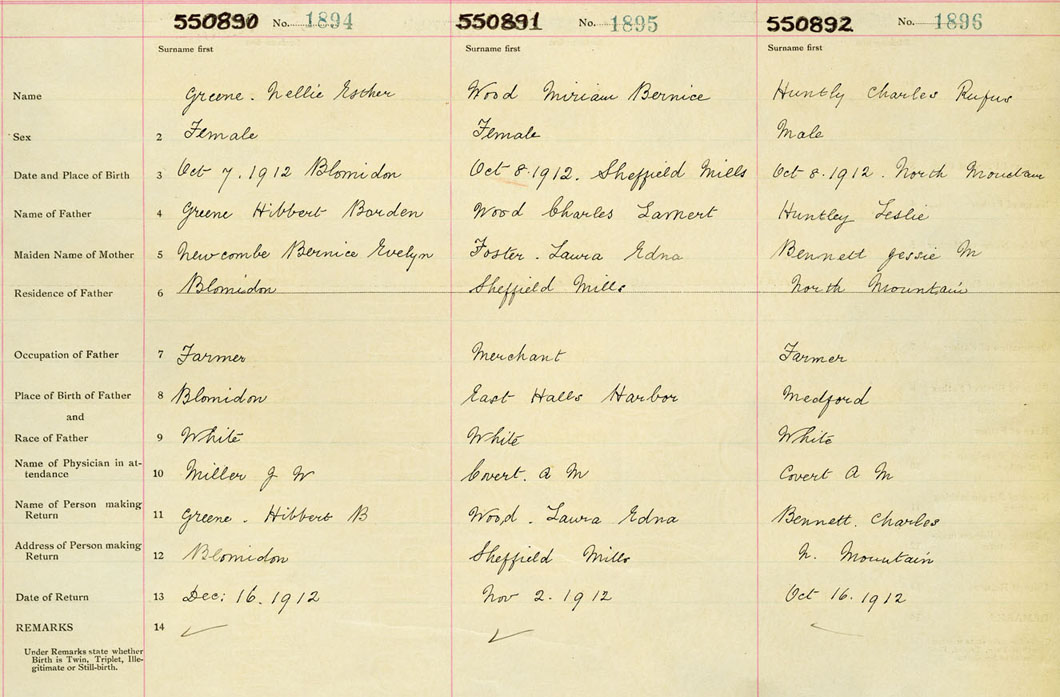 550890 No. 1894 550891 No. 1895 550892 No. 1896
Surname first Surname first Surname first
Name Greene. Nellie Esther Wood Miriam Bernice Huntly Charles Rufus
Sex 2 Female Female Male
Date and Place of Birth 3 Oct 7. 1912 Blomidon Oct 8. 1912. Sheffield Mills Oct 8. 1912. North Mountain
Name of Father 4 Greene Hibbert Borden Wood Charles Lamert Huntley Leslie
Maiden Name of Mother 5 Newcombe Bernice Evelyn Foster. Laura Edna Bennett Jessie M
Residence of Father 6 Blomidon Sheffield Mills North Mountain
Occupation of Father 7 Farmer Merchant Farmer
Place of Birth of Father 8 Blomidon East Halls Harbor Medford
and
Race of Father 9 White White White
Name of Physician in at-
tendance 10 Miller J W Covert. A M Covert A M
Name of Person making
Return 11 Greene. Hibbert B Wood. Laura Edna Bennett. Charles
Address of Person making
Return 12 Blomidon Sheffield Mills N. Mountain
Date of Return 13 Dec: 16. 1912 Nov 2. 1912 Oct 16. 1912
REMARKS 14
Under Remarks state whether
Birth is Twin, Triplet, Ille-
gitimate or Still-birth.